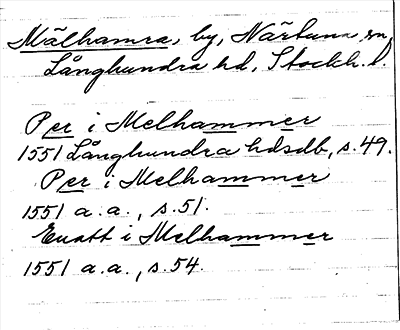 Mälhamra, by, Närtuna sn,
Långhundra hd, Stockh. l.
Per i Melhammer
1551 Långhundra hdsdb, s. 49.
Per i Melhammer
1551 a. a., s. 51.
Enatt i Melhammer
1551 a. a., s. 54.